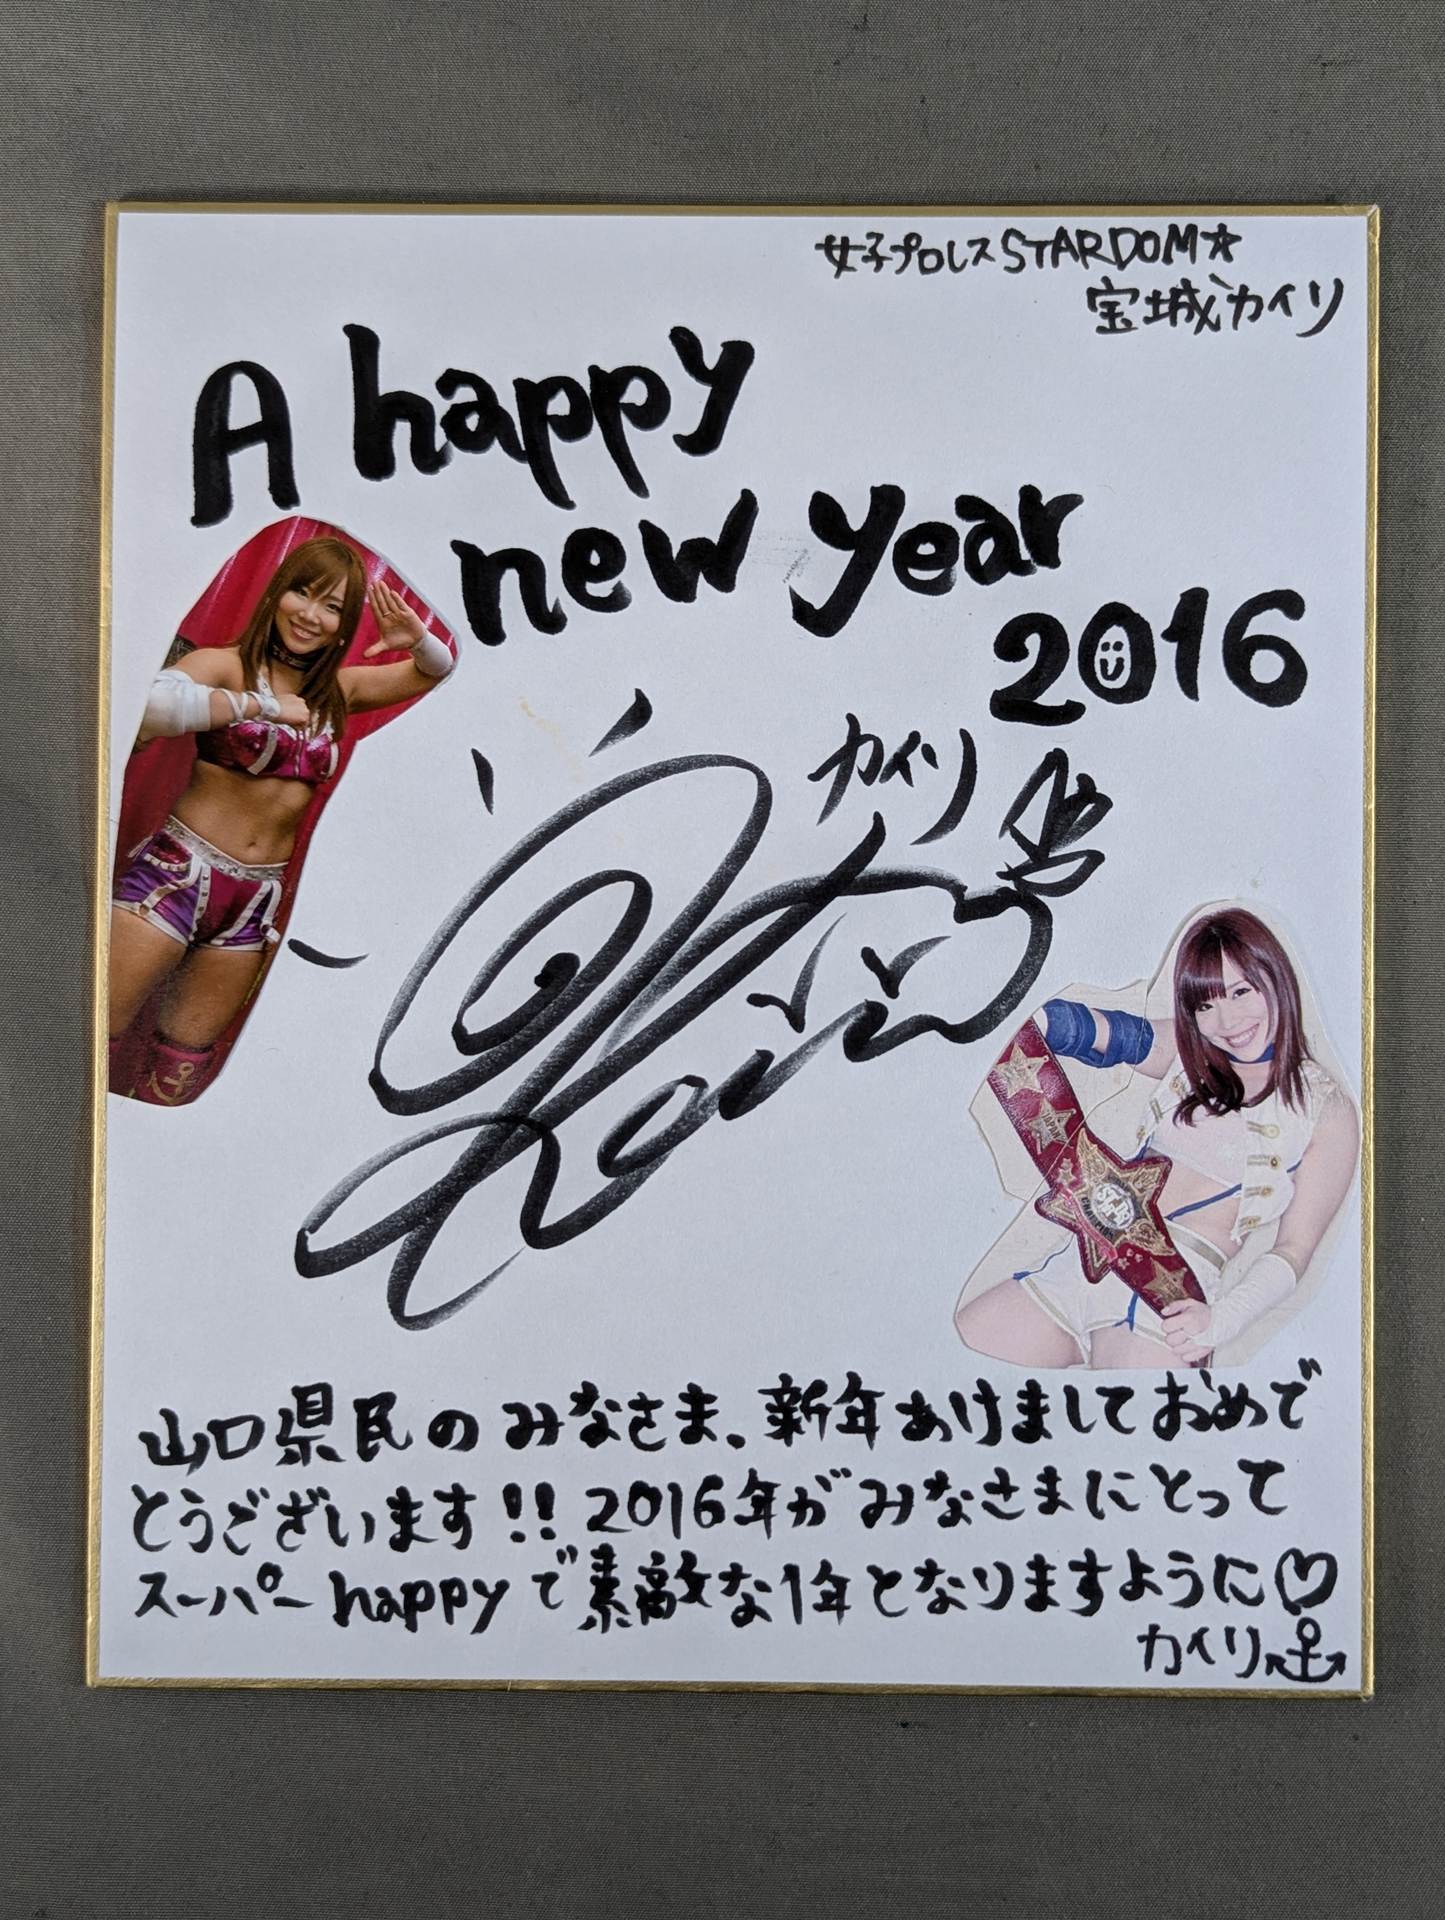 女子プロレスSTARDOM☆
宝城カイリ
A happy
new year
2016
カイリ
Kairi
山口県民のみなさま、新年あけましておめで
とうございます!! 2016年がみなさまにとって
スーパーhappyで素敵な1年となりますように♡
カイリ⚓